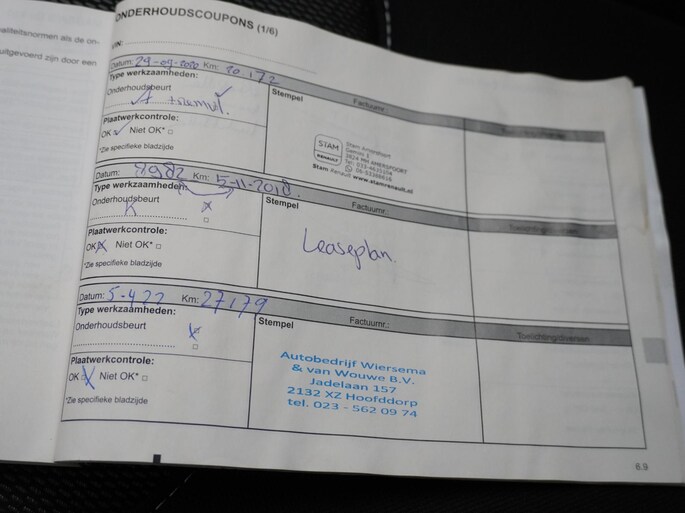 aliteitsnormen als de on-
uitgevoerd zijn door een
ONDERHOUDSCOUPONS (1/6)
VIN:
Datum: 29-09-2020 Km: 20.172
Type werkzaamheden:
Onderhoudsbeurt
Plaatwerkcontrole:
OK Niet OK*
*Zie specifieke bladzijde
Stempel
Factuurnr.:
STAM
RENAULT
Stam Amersfoort
3824 MH AMERSFOORT
Stam Renault www.stamrenault.nl
Datum: Km: 5-11-2018.
Type werkzaamheden:
Onderhoudsbeurt
Plaatwerkcontrole:
OK Niet OK*
*Zie specifieke bladzijde
Stempel
Factuurnr.:
Leaseplan.
Toelichting/diversen
Datum: 5-4-22 Km: 27179
Type werkzaamheden:
Onderhoudsbeurt
Plaatwerkcontrole:
OK Niet OK*
*Zie specifieke bladzijde
Stempel
Factuurnr.:
Autobedrijf Wiersema
& van Wouwe B.V.
Jadelaan 157
2132 XZ Hoofddorp
tel. 023 - 562 09 74
Toelichting/diversen
6.9